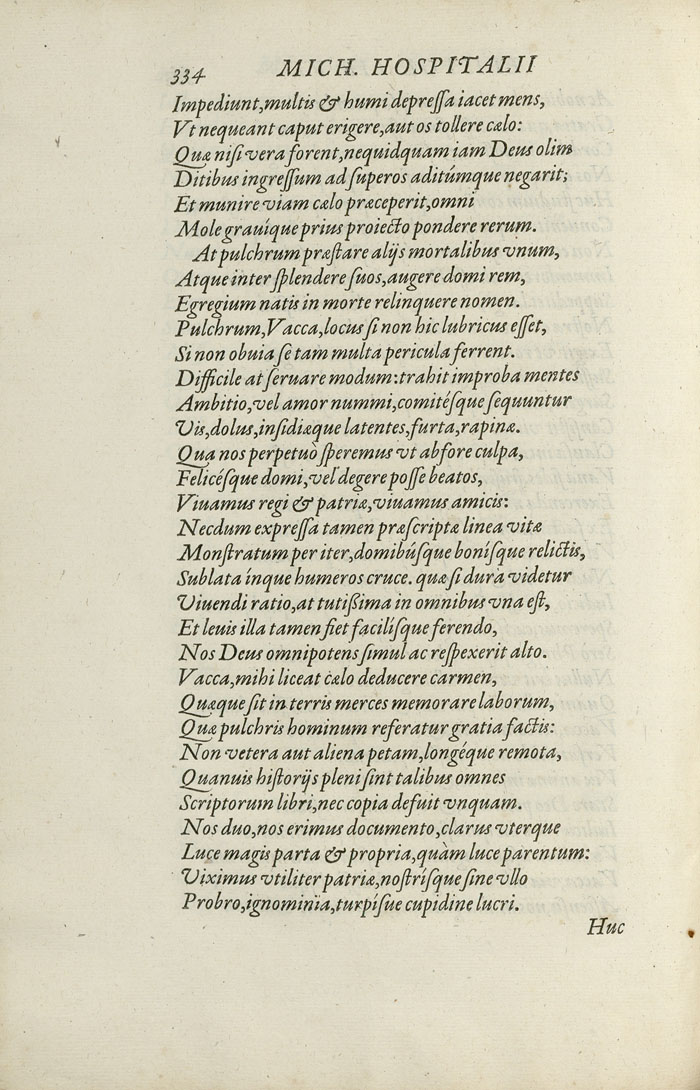 334 MICH. HOSPITALII
Impediunt,multis & humi depreſſa iacet mens,
Vt nequeant caput erigere,aut os tollere cælo:
Quæ niſi vera forent,nequidquam iam Deus olim
Ditibus ingreſſum ad ſuperos aditúmque negarit;
Et munire viam cælo præceperit,omni
Mole grauíque prius proiecto pondere rerum.
At pulchrum præſtare alijs mortalibus vnum,
Atque inter ſplendere ſuos,augere domi rem,
Egregium natis in morte relinquere nomen.
Pulchrum,Vacca,locus ſi non hic lubricus eſſet,
Si non obuia ſe tam multa pericula ferrent.
Difficile at ſeruare modum:trahit improba mentes
Ambitio,vel amor nummi,comitéſque ſequuntur
Vis,dolus,inſidiæque latentes,furta,rapinæ.
Qua nos perpetuò ſperemus vt abfore culpa,
Felicéſque domi,vel degere poſſe beatos,
Viuamus regi & patriæ,viuamus amicis:
Necdum expreſſa tamen præſcriptæ linea vitæ
Monſtratum per iter,domibúſque boníſque relictis,
Sublata ínque humeros cruce. quæ ſi dura videtur
Viuendi ratio,at tutißima in omnibus vna eſt,
Et leuis illa tamen fiet faciliſque ferendo,
Nos Deus omnipotens ſimul ac reſpexerit alto.
Vacca,mihi liceat cælo deducere carmen,
Quæque ſit in terris merces memorare laborum,
Quæ pulchris hominum referatur gratia factis:
Non vetera aut aliena petam,longéque remota,
Quanuis hiſtorijs pleni ſint talibus omnes
Scriptorum libri,nec copia defuit vnquam.
Nos duo,nos erimus documento,clarus vterque
Luce magis parta & propria,quàm luce parentum:
Viximus vtiliter patriæ,noſtriſque ſine vllo
Probro,ignominia,turpíſue cupidine lucri.
Huc